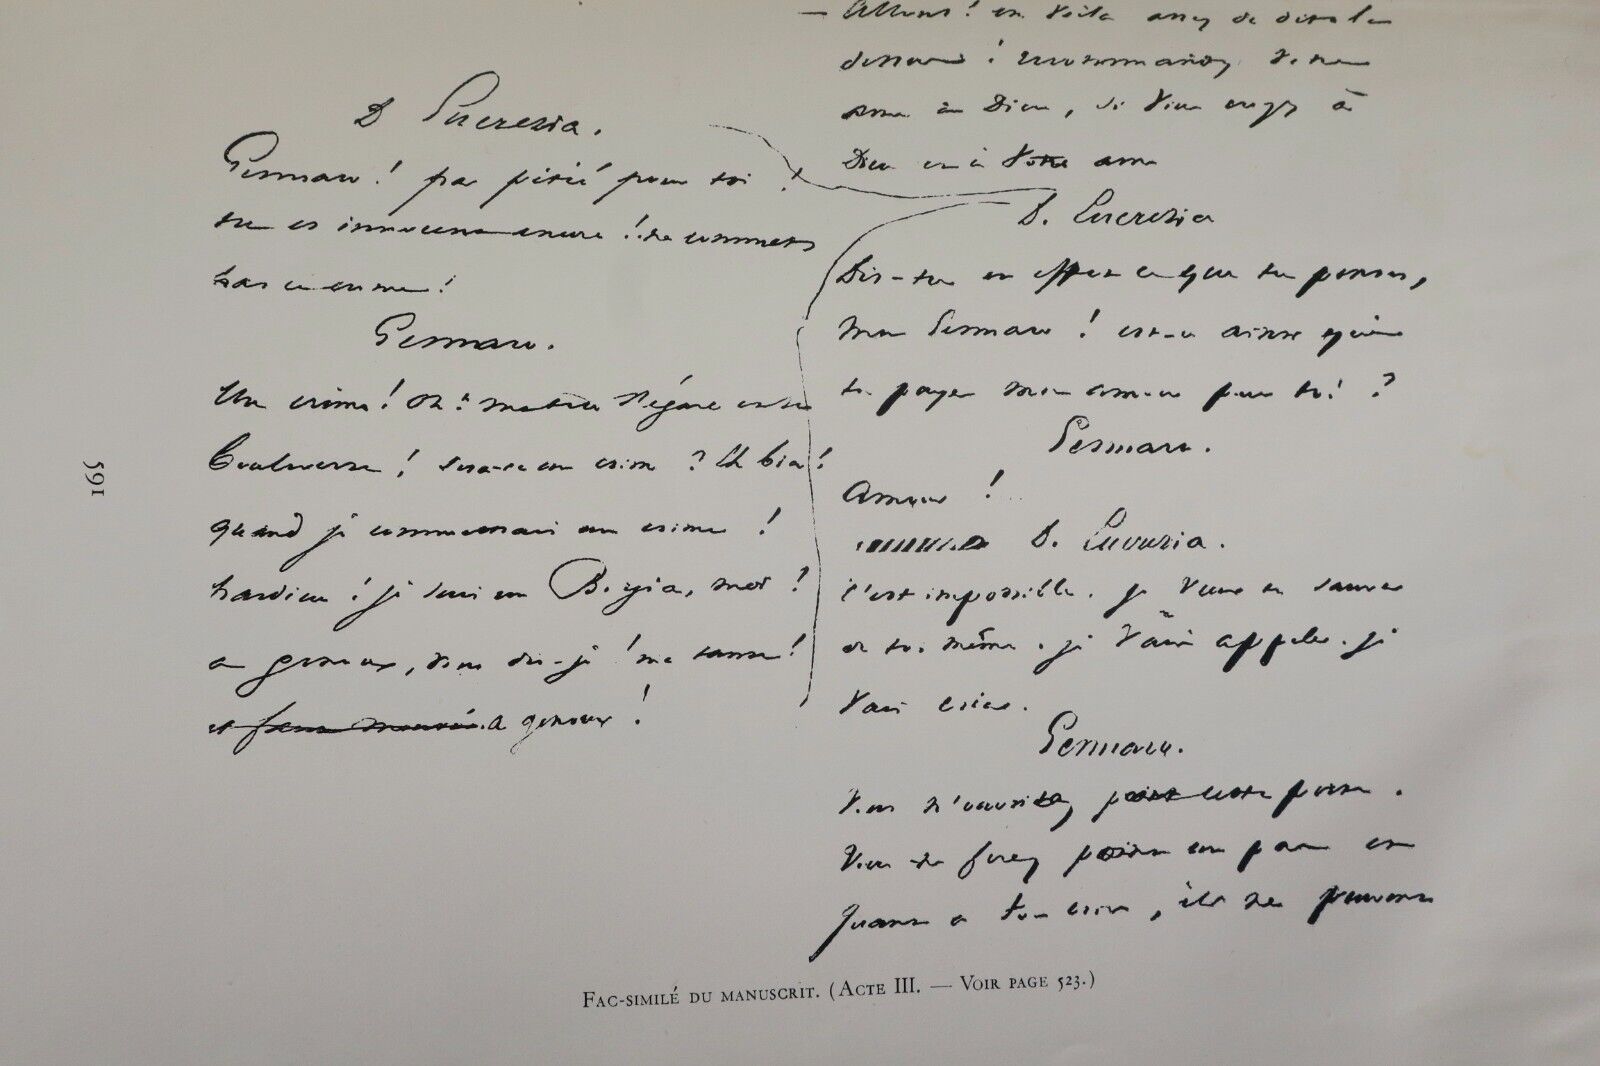 D Lucrezia.
Gennaro ! par pitié pour toi !
tu es innocent encore ! ne commets
pas ce crime !
Gennaro.
Un crime ! Oh ! ma tête s'égare et se
bouleverse ! sera-ce un crime ? Eh bien !
quand je commettrais un crime !
pardieu ! je suis un Borgia, moi !
a genoux, vous dis-je ! ma tante !
et a genoux !
— Allons ! en voilà assez de
! recommandez votre
âme à Dieu, si vous croyez à
Dieu et à votre ame
D. Lucrezia
Dis-tu en effet ce que tu penses,
mon Gennaro ! est-ce ainsi que
tu payes mon amour pour toi ?
Gennaro.
Amour !
D. Lucrezia.
c'est impossible. je veux te sauver
de toi-même. je vais appeler. je
vais crier.
Gennaro.
Vous n'ouvrirez point cette porte.
Vous ne ferez point un pas et
quant à vos cris, ils ne peuvent
591
FAC-SIMILÉ DU MANUSCRIT. (ACTE III. — VOIR PAGE 523.)